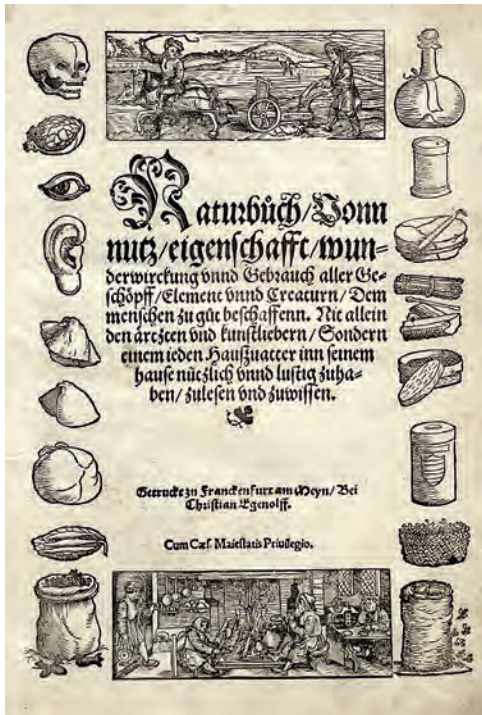 Naturbůch/Vonn
nutz/eigenschafft/wun-
derwirckung vnnd Gebrauch aller Ge-
schöpff/Element vnnd Creaturn/Dem
menschen zu gůt beschaffenn. Nit allein
den ärtzten vnd kunstliebern/Sondern
einem ieden Haußuatter inn seinem
hause nützlich vnnd lustig zuha-
ben/zulesen vnd zuwissen.
Getruckt zu Franckenfurt am Meyn/Bei
Christian Egenolff.
Cum Cæs. Maiestatis Priuilegio.